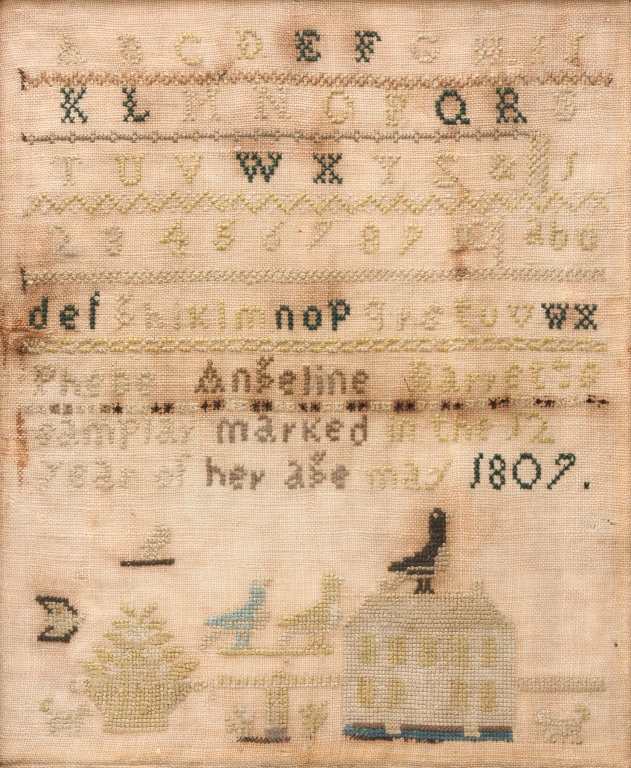 A B C D E F G H I J
K L M N O P Q R S
T U V W X Y Z & 1
2 3 4 5 6 7 8 9 a b c
d e f g h i k l m n o p q r s t u v w x
Phebe Angeline Barretts
samplar marked in the 12
year of her age may 1807.